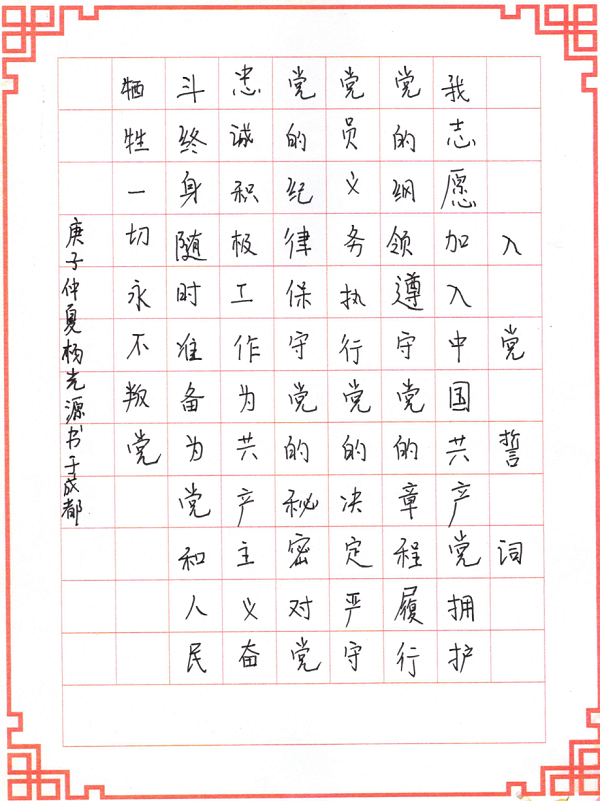 入党誓词
我志愿加入中国共产党拥护
党的纲领遵守党的章程履行
党员义务执行党的决定严守
党的纪律保守党的秘密对党
忠诚积极工作为共产主义奋
斗终身随时准备为党和人民
牺牲一切永不叛党
庚子仲夏杨光源书于成都